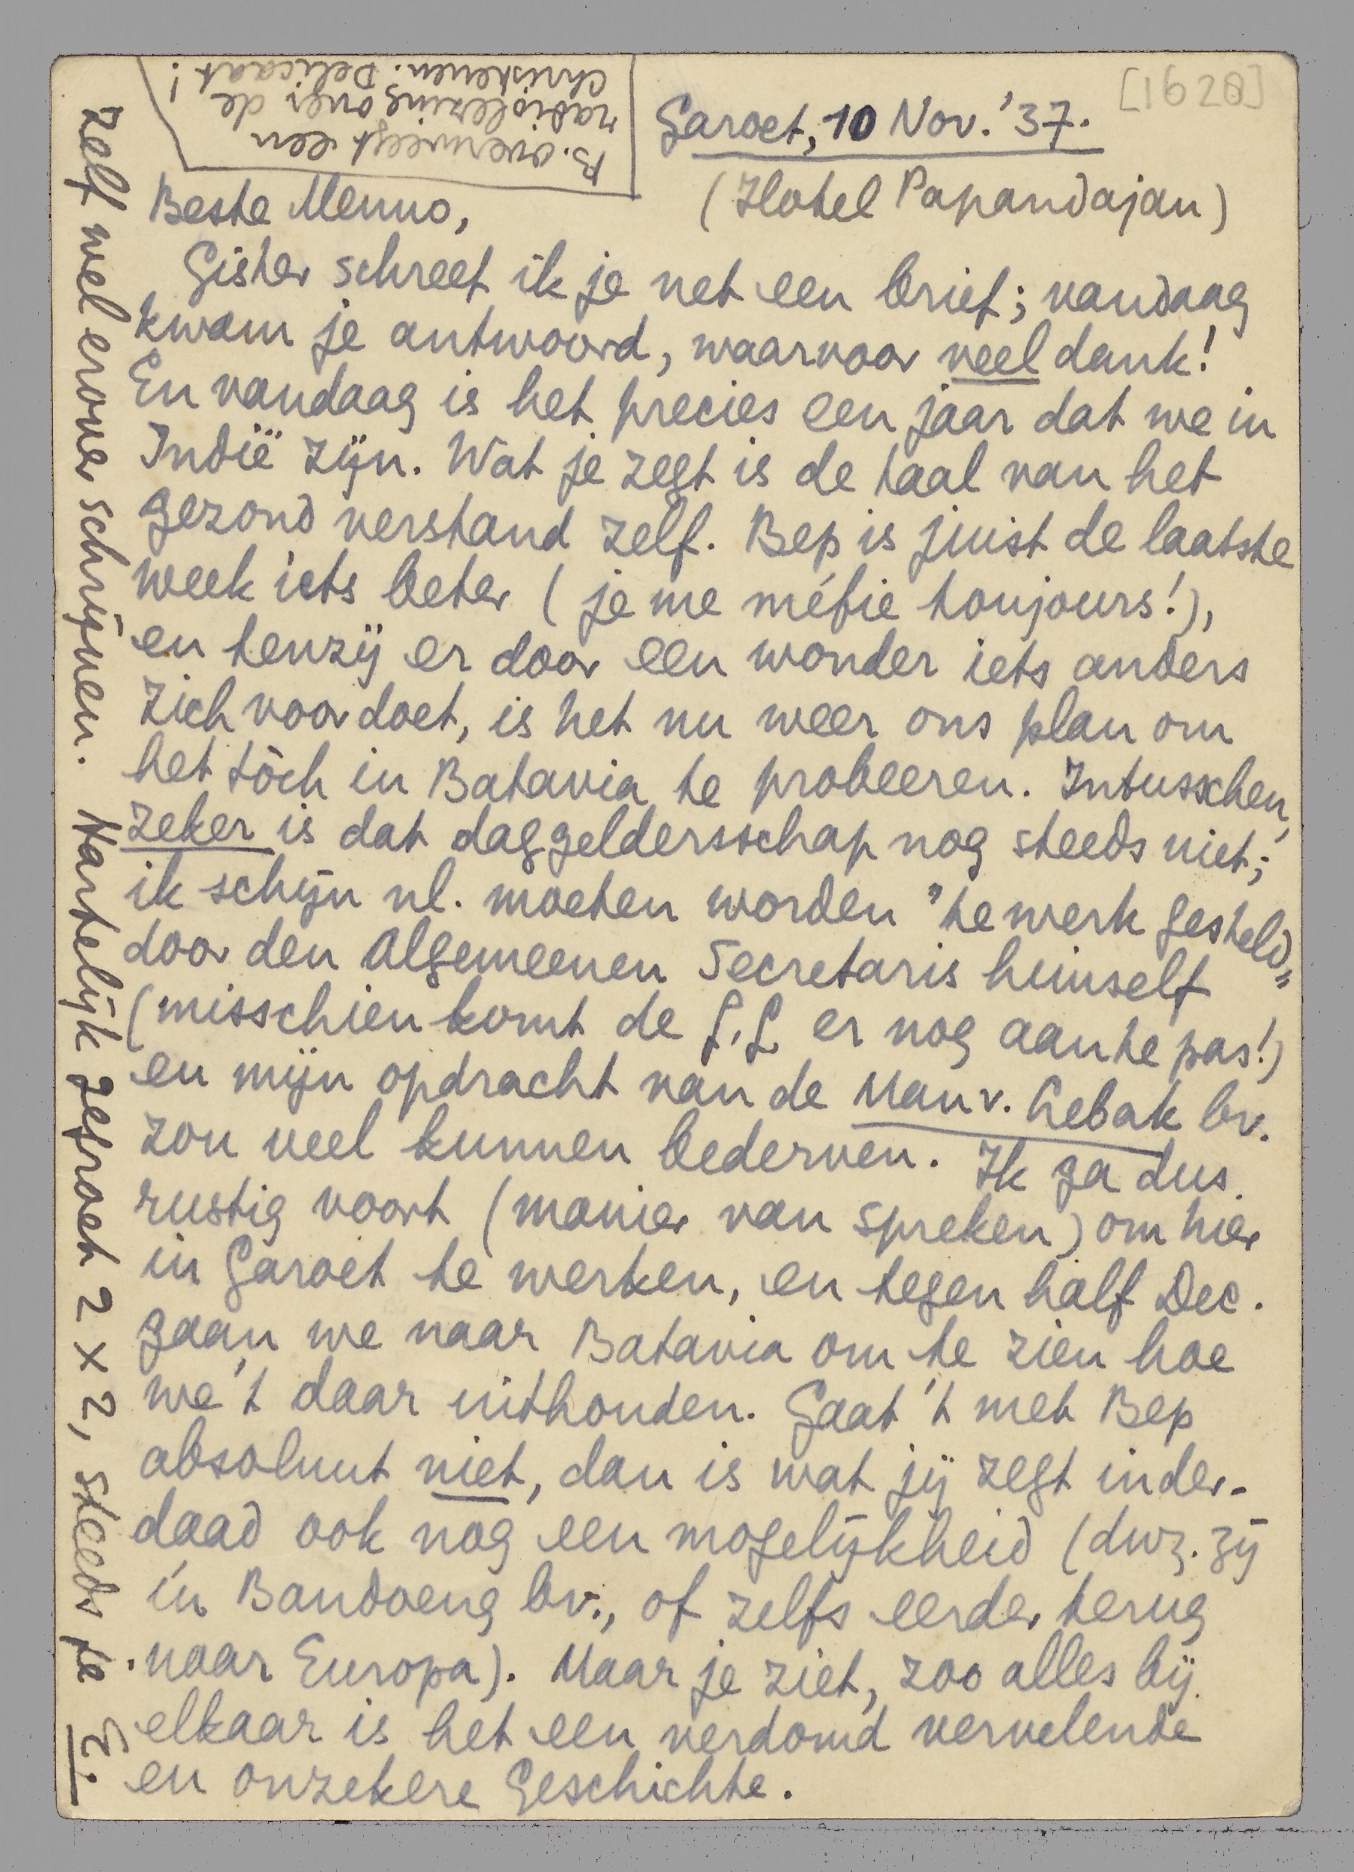 [1628]
Garoet, 10 Nov. '37.
(Hotel Papandajan)
B. overweegt een
radiolezing over de
Christenen. Delicaat!
Beste Menno,
Gister schreef ik je net een brief; vandaag
kwam je antwoord, waarvoor veel dank!
En vandaag is het precies een jaar dat we in
Indië zijn. Wat je zegt is de taal van het
gezond verstand zelf. Bep is juist de laatste
week iets beter (je me méfie toujours!),
en tenzij er door een wonder iets anders
zich voordoet, is het nu weer ons plan om
het tòch in Batavia te probeeren. Intusschen,
zeker is dat daggeldersschap nog steeds niet;
ik schijn nl. moeten worden "te werk gesteld"
door den Algemeenen Secretaris himself
(misschien komt de G.G. er nog aan te pas!)
en mijn opdracht van de Man v. Lebak bv.
zou veel kunnen bederven. Ik ga dus
rustig voort (manier van spreken) om hier
in Garoet te werken, en tegen half Dec.
gaan we naar Batavia om te zien hoe
we 't daar uithouden. Gaat 't met Bep
absoluut niet, dan is wat jij zegt inder-
daad ook nog een mogelijkheid (dwz. zij
in Bandoeng bv., of zelfs eerder terug
naar Europa). Maar je ziet, zoo alles bij
elkaar is het een verdomd vervelende
en onzekere geschichte.
zelf wel erover schrijven. Hartelijk gegroet 2 x 2, steeds je E.